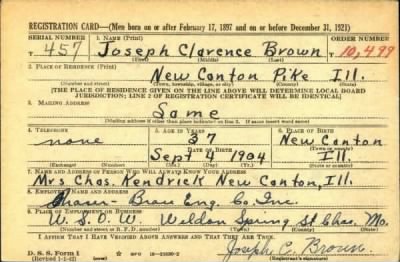 REGISTRATION CARD—(Men born on or after February 17, 1897 and on or before December 31, 1921)
SERIAL NUMBER 1. NAME (Print) ORDER NUMBER
T 457 Joseph Clarence Brown 10,499
(First) (Middle) (Last)
2. PLACE OF RESIDENCE (Print)
New Canton Pike Ill.
(Number and street) (Town, township, village, or city) (County) (State)
[THE PLACE OF RESIDENCE GIVEN ON THE LINE ABOVE WILL DETERMINE LOCAL BOARD
JURISDICTION; LINE 2 OF REGISTRATION CERTIFICATE WILL BE IDENTICAL]
3. MAILING ADDRESS
Same
[Mailing address if other than place indicated on line 2. If same insert word same]
4. TELEPHONE 5. AGE IN YEARS 6. PLACE OF BIRTH
none 37 New Canton
DATE OF BIRTH (Town or county)
Sept 4 1904 Ill.
(Exchange) (Number) (Mo.) (Day) (Yr.) (State or country)
7. NAME AND ADDRESS OF PERSON WHO WILL ALWAYS KNOW YOUR ADDRESS
Mrs Chas. Kendrick New Canton, Ill.
8. EMPLOYER'S NAME AND ADDRESS
Fraser-Brace Eng. Co. Inc.
9. PLACE OF EMPLOYMENT OR BUSINESS
W. S. O. W. Weldon Spring St Chas. Mo.
(Number and street or R. F. D. number) (Town) (County) (State)
I AFFIRM THAT I HAVE VERIFIED ABOVE ANSWERS AND THAT THEY ARE TRUE.
D. S. S. Form 1
(Revised 1-1-42) GPO 16—21630-2
Joseph C. Brown